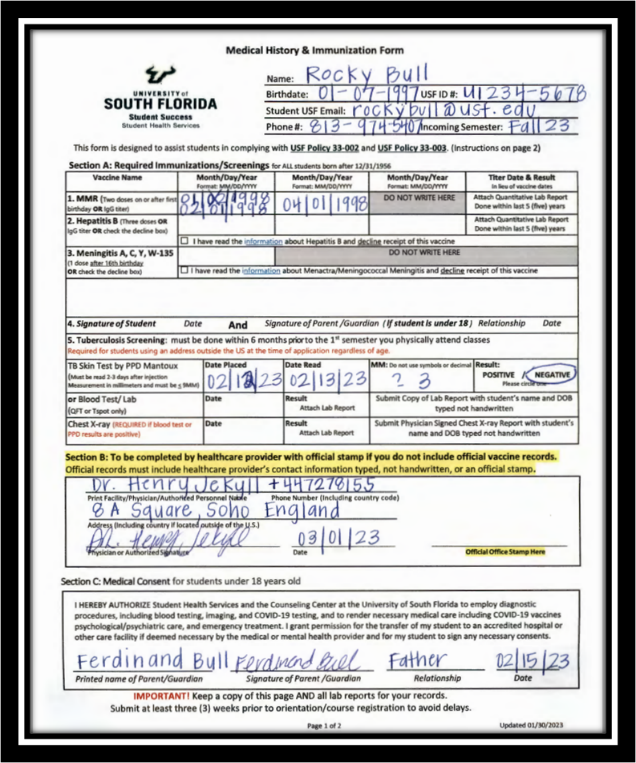 Medical History & Immunization Form
UNIVERSITY of
SOUTH FLORIDA
Student Success
Student Health Services
Name: Rocky Bull
Birthdate: 01-07-1997 USF ID #: U1234-5678
Student USF Email: rockybull@usf.edu
Phone #: 813-974-5407 Incoming Semester: Fall 23
This form is designed to assist students in complying with USF Policy 33-002 and USF Policy 33-003. (Instructions on page 2)
Section A: Required Immunizations/Screenings for ALL students born after 12/31/1956
Vaccine Name Month/Day/Year Month/Day/Year Month/Day/Year Titer Date & Result
Format: MM/DD/YYYY Format: MM/DD/YYYY Format: MM/DD/YYYY In lieu of vaccine dates
1. MMR (Two doses on or after first birthday OR IgG titer) 02/01/1998 04/01/1998 DO NOT WRITE HERE Attach Quantitative Lab Report Done within last 5 (five) years
2. Hepatitis B (Three doses OR IgG titer OR check the decline box) Attach Quantitative Lab Report Done within last 5 (five) years
I have read the information about Hepatitis B and decline receipt of this vaccine
3. Meningitis A, C, Y, W-135 DO NOT WRITE HERE
(1 dose after 16th birthday
OR check the decline box) I have read the information about Menactra/Meningococcal Meningitis and decline receipt of this vaccine
4. Signature of Student Date And Signature of Parent/Guardian (If student is under 18) Relationship Date
5. Tuberculosis Screening: must be done within 6 months prior to the 1st semester you physically attend classes
Required for students using an address outside the US at the time of application regardless of age.
TB Skin Test by PPD Mantoux Date Placed Date Read MM: Do not use symbols or decimal Result:
(Must be read 2-3 days after injection 02/ /23 02/13/23 ? 3 POSITIVE / NEGATIVE
Measurement in millimeters and must be ≤ 9MM) Please circle one
or Blood Test/ Lab Date Result Submit Copy of Lab Report with student's name and DOB
(QFT or Tspot only) Attach Lab Report typed not handwritten
Chest X-ray (REQUIRED if blood test or Date Result Submit Physician Signed Chest X-ray Report with student's
PPD results are positive) Attach Lab Report name and DOB typed not handwritten
Section B: To be completed by healthcare provider with official stamp if you do not include official vaccine records.
Official records must include healthcare provider's contact information typed, not handwritten, or an official stamp.
Dr. Henry Jekyll +447278155
Print Facility/Physician/Authorized Personnel Name Phone Number (Including country code)
8 A Square, Soho England
Address (Including country if located outside of the U.S.)
Dr. Henry Jekyll 03/01/23
Physician or Authorized Signature Date Official Office Stamp Here
Section C: Medical Consent for students under 18 years old
I HEREBY AUTHORIZE Student Health Services and the Counseling Center at the University of South Florida to employ diagnostic
procedures, including blood testing, imaging, and COVID-19 testing, and to render necessary medical care including COVID-19 vaccines
psychological/psychiatric care, and emergency treatment. I grant permission for the transfer of my student to an accredited hospital or
other care facility if deemed necessary by the medical or mental health provider and for my student to sign any necessary consents.
Ferdinand Bull Ferdinand Bull Father 02/15/23
Printed name of Parent/Guardian Signature of Parent /Guardian Relationship Date
IMPORTANT! Keep a copy of this page AND all lab reports for your records.
Submit at least three (3) weeks prior to orientation/course registration to avoid delays.
Page 1 of 2 Updated 01/30/2023